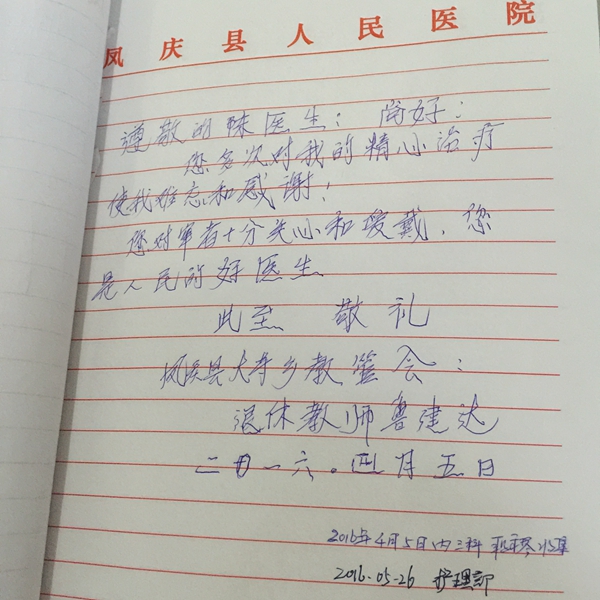 凤庆县人民医院
遵敬的陈医生：尚好：
您多次对我的精心治疗
使我难忘和感谢！
您对患者十分关心和爱戴，您
是人民的好医生
此至 敬礼
凤庆县大寺乡教管会：
退休教师鲁建达
二〇一六.四月五日
2016年4月5日内三科
2016.05-26 护理部